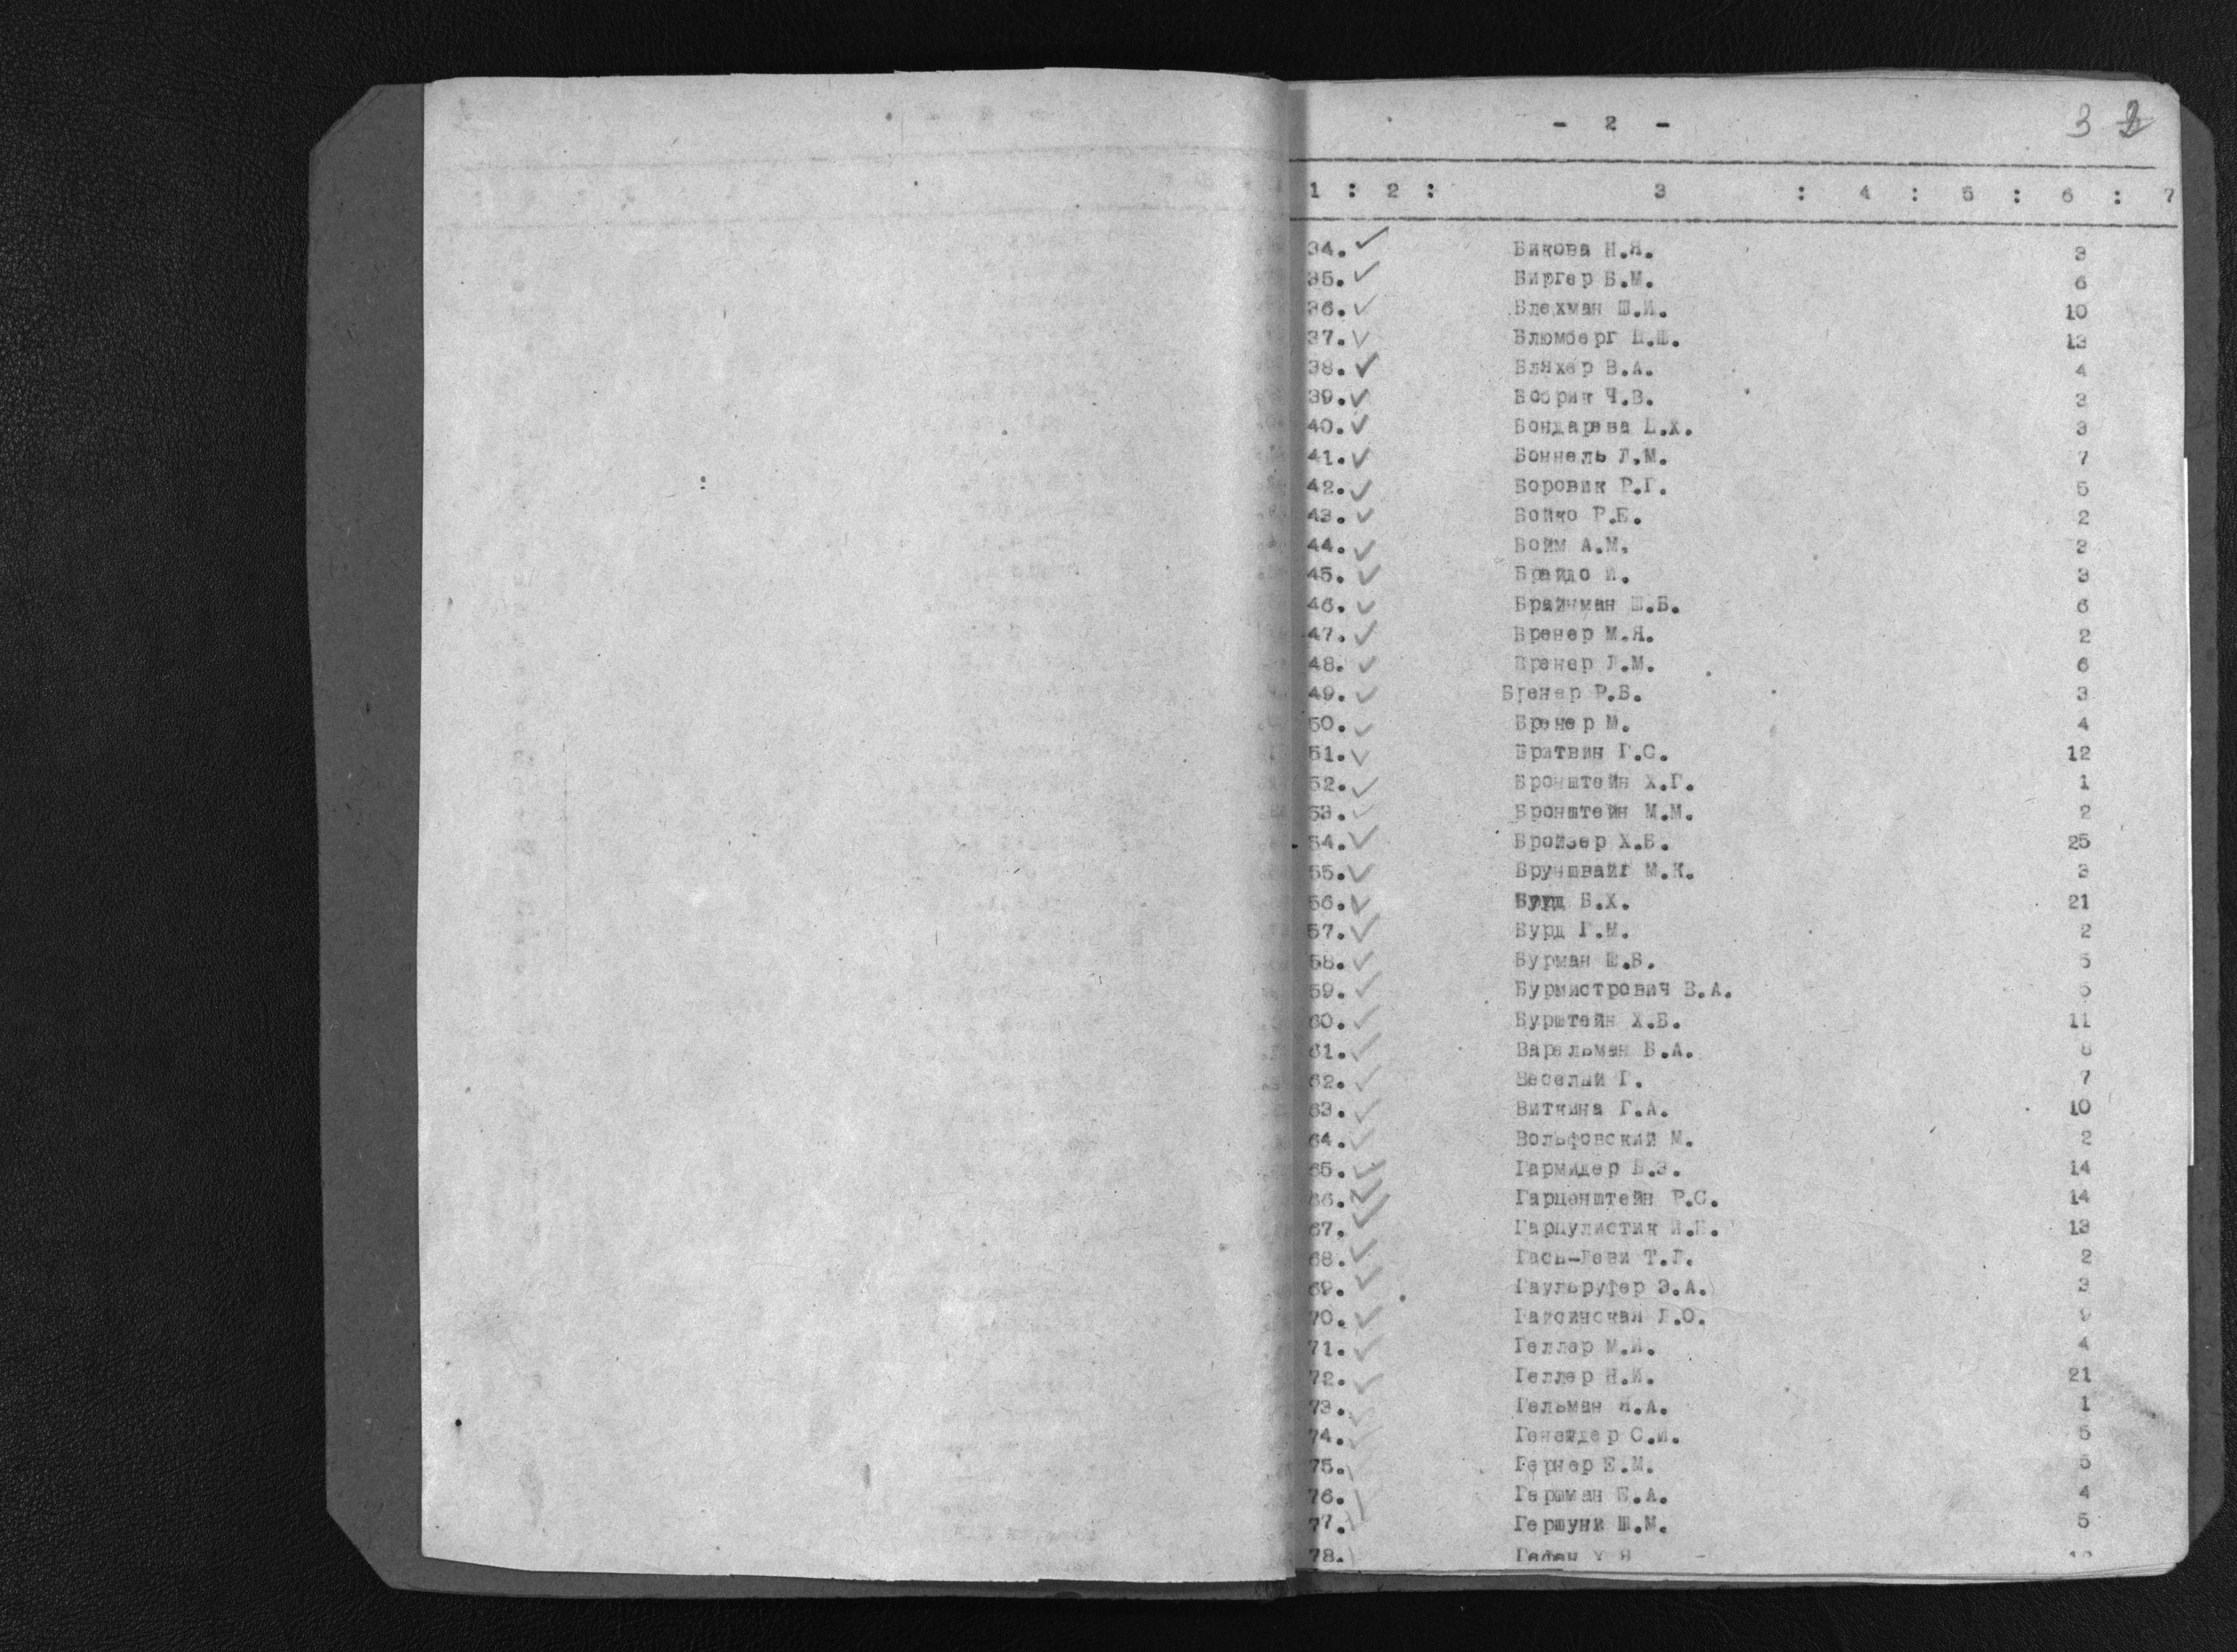 - 2 -
3 2
1 : 2 : 3 : 4 : 5 : 6 : 7
34. Бикова Н.Я. 3
35. Биргер Б.М. 6
36. Блехман Ш.И. 10
37. Блюмберг 13
38. Бляхер В.А. 4
39. Боорик Ч.В. 3
40. Бондарева Ц.Х. 3
41. Боннель Л.М. 7
42. Боровик Р.Г. 5
43. Бойко Р.Е. 2
44. Бойм А.М. 3
45. Брайдо И. 3
46. Брайчман Ш.Б. 6
47. Бренер М.Я. 2
48. Бренер Л.М. 6
49. Бренер Р.Б. 3
50. Бренер М. 4
51. Братвин Г.С. 12
52. Бронштейн Х.Г. 1
53. Бронштейн М.М. 2
54. Бройзер Х.Б. 25
55. Брушвайг М.К. 3
56. Бурд Б.Х. 21
57. Бурд Г.М. 2
58. Бурман Ш.Б. 5
59. Бурмистрович В.А. 5
60. Бурштейн Х.Б. 11
61. Варельман Б.А. 8
62. Веселый Г. 7
63. Виткина Г.А. 10
64. Вольфовский М. 2
65. Гармидер 14
66. Гарценштейн Р.С. 14
67. Гарцулистик 13
68. Гась-Леви Т.Л. 2
69. Гаульруфер Э.А. 3
70. Гайсинская Л.О. 9
71. Геллер М.И. 4
72. Геллер Н.И. 21
73. Гельман Я.А. 1
74. Генейдер С.И. 5
75. Гернер Е.М. 5
76. Гершман Е.А. 4
77. Гершуни Ш.М. 5
78.